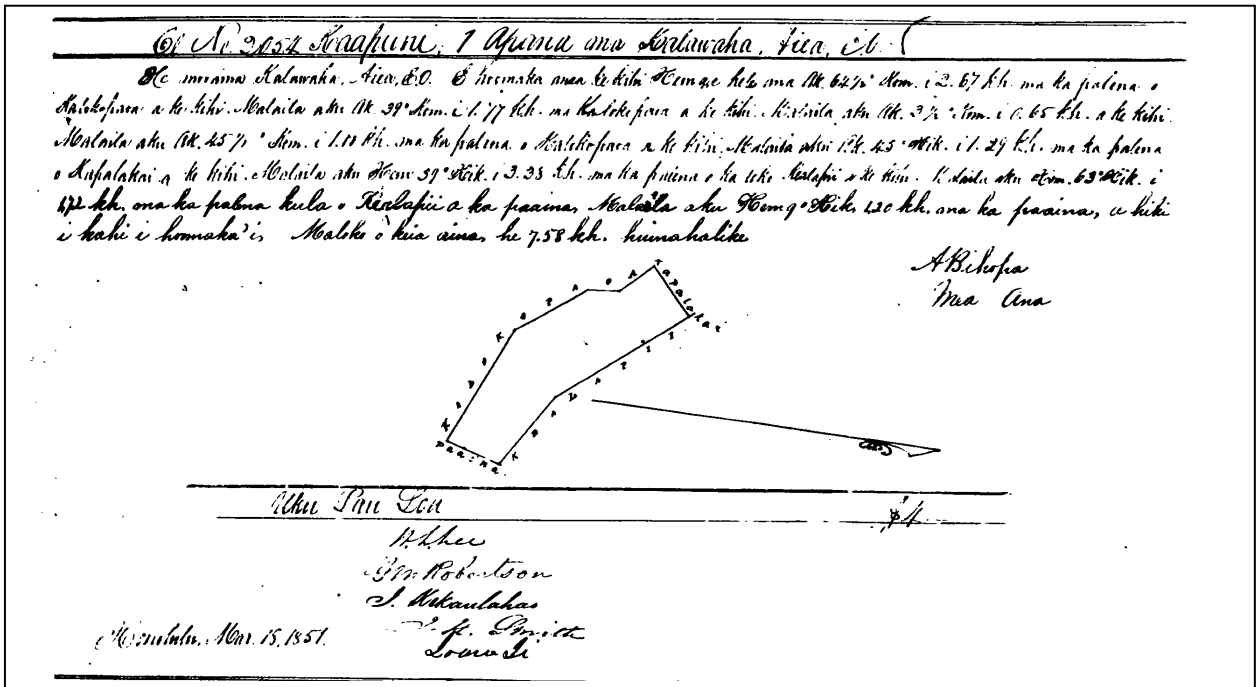 Cl. No. 2054 Kaapuni, 1 Apana ma Kalawaha, Aiea,
He moaina Kalawaha, Aiea, E.O. E hoomaka ana ke kihi Hema e hele ma Ak. 64½° Kom. i 2.67 kh. ma ka palena o
Kalokopaoa a ke kihi. Malaila aku Ak. 39° Kom. i 1.77 kh. ma Kalokopaoa a ke kihi. Malaila aku Ak. 3½° Kom. i 0.65 kh. a ke kihi
Malaila aku Ak. 45½° Kom. i 1.10 kh. ma ka palena o Kalokopaoa a ke kihi. Malaila aku Ak. 45° Hik. i 1.29 kh. ma ka palena
o Kapalakai a ke kihi. Malaila aku Hem 39° Hik. i 3.38 kh. ma ka paeina o ka loko a ke kihi. Malaila aku Hem. 63° Hik. i
kh. ma ka palena kula o a ka paaina, Malaila aku Hem 9° Hik. 1.20 kh. ma ka paaina, a hiki
i kahi i hoomaka'i. Maloko o keia aina, he 7.58 kh. huinahalike
A Bihopa
Mea Ana
Kapalakai
paaina
Uku Pau Loa $4
W. L. Lee
G M Robertson
J. Kekaulahao
J. H. Smith
Honolulu, Mar. 15, 1851.